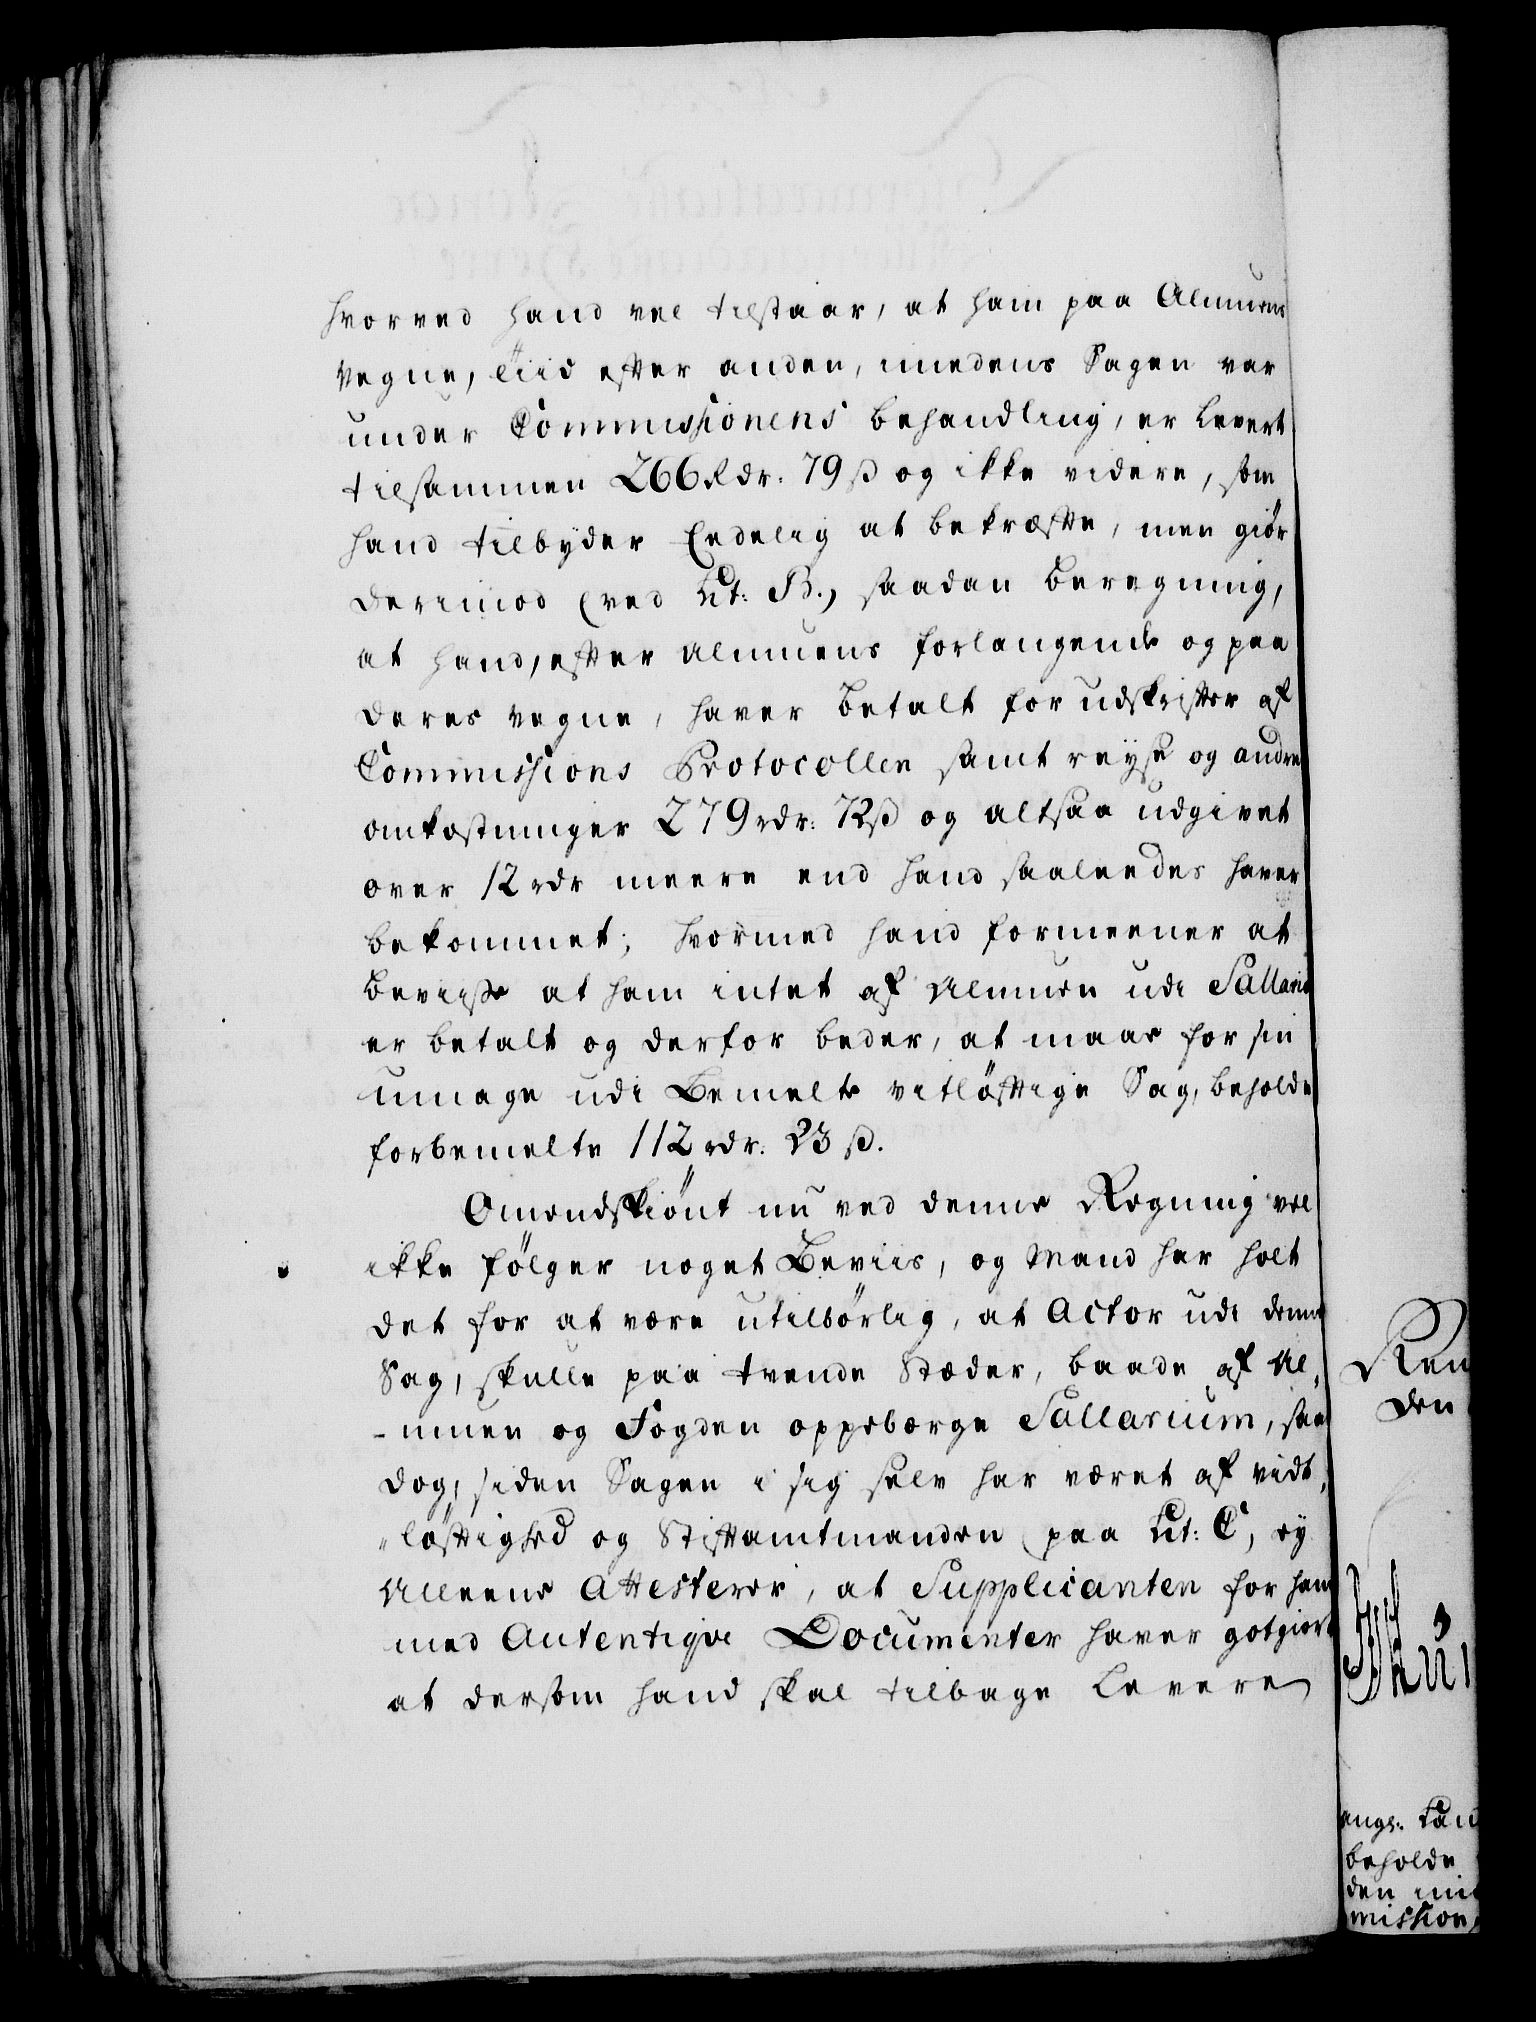 hvorved hand vel tilstaar, at ham paa Almuens
Vegne, tiid efter anden, imedens Sagen var
under Commissionens behandling, er levert
tilsammen 266 Rdr: 79 ß og ikke videre, som
hand tilbyder Eedelig at bekræfte, men giør
derimod (ved Lit: B.) saadan beregning,
at hand, efter Almuens forlangende og paa
deres vegne, haver betalt for udskrifter af
Commissions Protocollen samt reyse og andre
omkostninger 279 rdr: 72 ß og altsaa udgivet
over 12 rdr meere end hand saaleedes haver
bekommet; hvormed hand formeener at
beviisse at ham intet af Almuen udi Sallario
er betalt og derfor beder, at maae for sin
umage udi Bemelte vitløftige Sag, beholde
forbemelte 112 rdr: 23 ß.
Omendskiönt nu ved denne Regning vel
ikke fölger noget Beviis, og Mand har holt
det for at være utilbörlig, at Actor udi denne
Sag, skulle paa tvende Stæder, baade af Al,
-muen og Fogden oppebærge Sallarium, saa
dog, siden Sagen i sig selv har været af vidt,
„löftighed og Stiftamtmanden paa Lit: C, ey
Alleene Attesterer, at Supplicanten for ham
med Autentiqve Documenter haver gotgiort
at dersom hand skal tilbage levere
Ren
den
beholde
den
mission